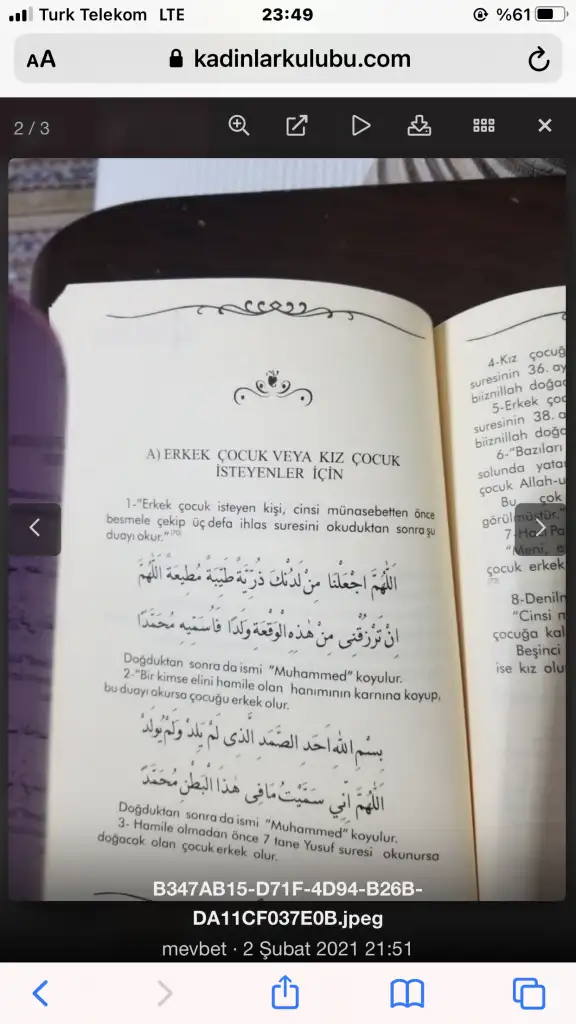 Turk Telekom LTE 23:49 %61
AA kadinlarkulubu.com
2 / 3
A) ERKEK ÇOCUK VEYA KIZ ÇOCUK
İSTEYENLER İÇİN
1-"Erkek çocuk isteyen kişi, cinsi münasebetten önce
besmele çekip üç defa ihlas suresini okuduktan sonra şu
duayı okur."
اَللّٰهُمَّ اجْعَلْنَا مِنْ لَدُنْكَ ذُرِّيَّةً طَيِّبَةً مُطِيعَةً اَللّٰهُمَّ
اِنْ تَرْزُقْنِى مِنْ هٰذِهِ الْوَقْعَةِ وَلَدًا فَاُسَمِّيهِ مُحَمَّدًا
Doğduktan sonra da ismi "Muhammed" koyulur.
2-"Bir kimse elini hamile olan hanımının karnına koyup,
bu duayı okursa çocuğu erkek olur.
بِسْمِ اللّٰهِ اَحَدِ الصَّمَدِ الَّذِى لَمْ يَلِدْ وَلَمْ يُولَدْ
اَللّٰهُمَّ اِنِّي سَمَّيْتُ مَافِى هٰذَا الْبَطْنِ مُحَمَّدًا
Doğduktan sonra da ismi "Muhammed" koyulur.
3- Hamile olmadan önce 7 tane Yusuf suresi okunursa
doğacak olan çocuk erkek olur.
4-Kız
suresinin 36.
biiznillah
5-Erkek
suresinin 38.
biiznillah
6-"Bazıları
solunda
çocuk
Bu çok
görülmüştür."
"Meni,
çocuk erkek
8-
"Cinsi
çocuğa
Beşinci
ise kız
B347AB15-D71F-4D94-B26B-
DA11CF037E0B.jpeg
mevbet · 2 Şubat 2021 21:51